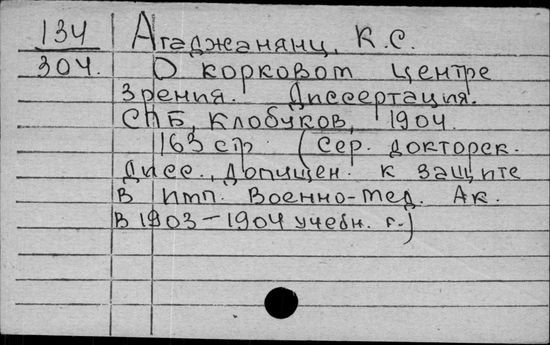 134 Агаджанянц, К.С.
304. О корковом центре
зрения. Диссертация.
СПБ, Клобуков, 1904.
163 стр. (Сер. докторск.
дисс., допущен. к защите
в имп. Военно-мед. Ак.
в 1903-1904 учебн. г.)